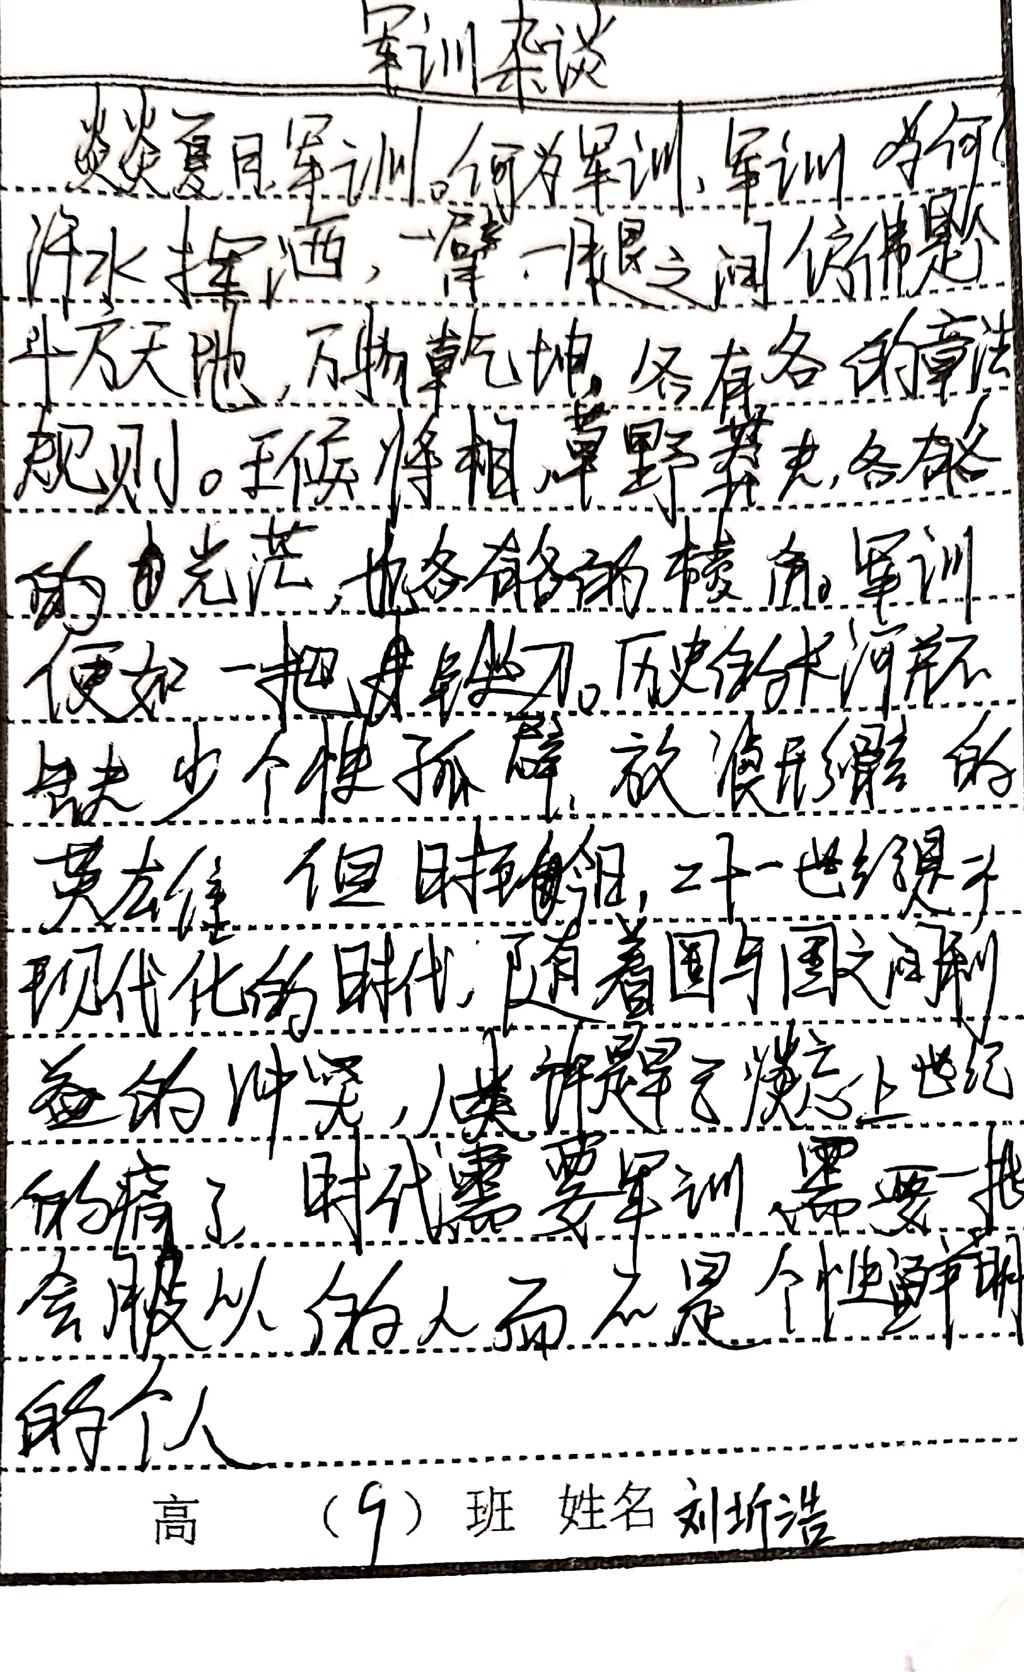 军训杂谈
炎炎夏日,军训。何为军训,军训为何
汗水挥洒,一臂一腿之间仿佛是
斗方天地,万物乾坤。各有各的章法
规则。王侯将相,草野莽夫,各有各
的光芒,也各有各的棱角。军训
便如一把刀。历史的长河并不
缺少个性孤僻,放浪形骸的
英雄 但时至今日,二十一世纪是个
现代化的时代,随着国与国之间利
益的冲突,人类许是早已淡忘上世纪
的痛了 时代需要军训,需要一批
会服从的人而不是个性鲜明
的个人
高 (9) 班 姓名 刘圻浩